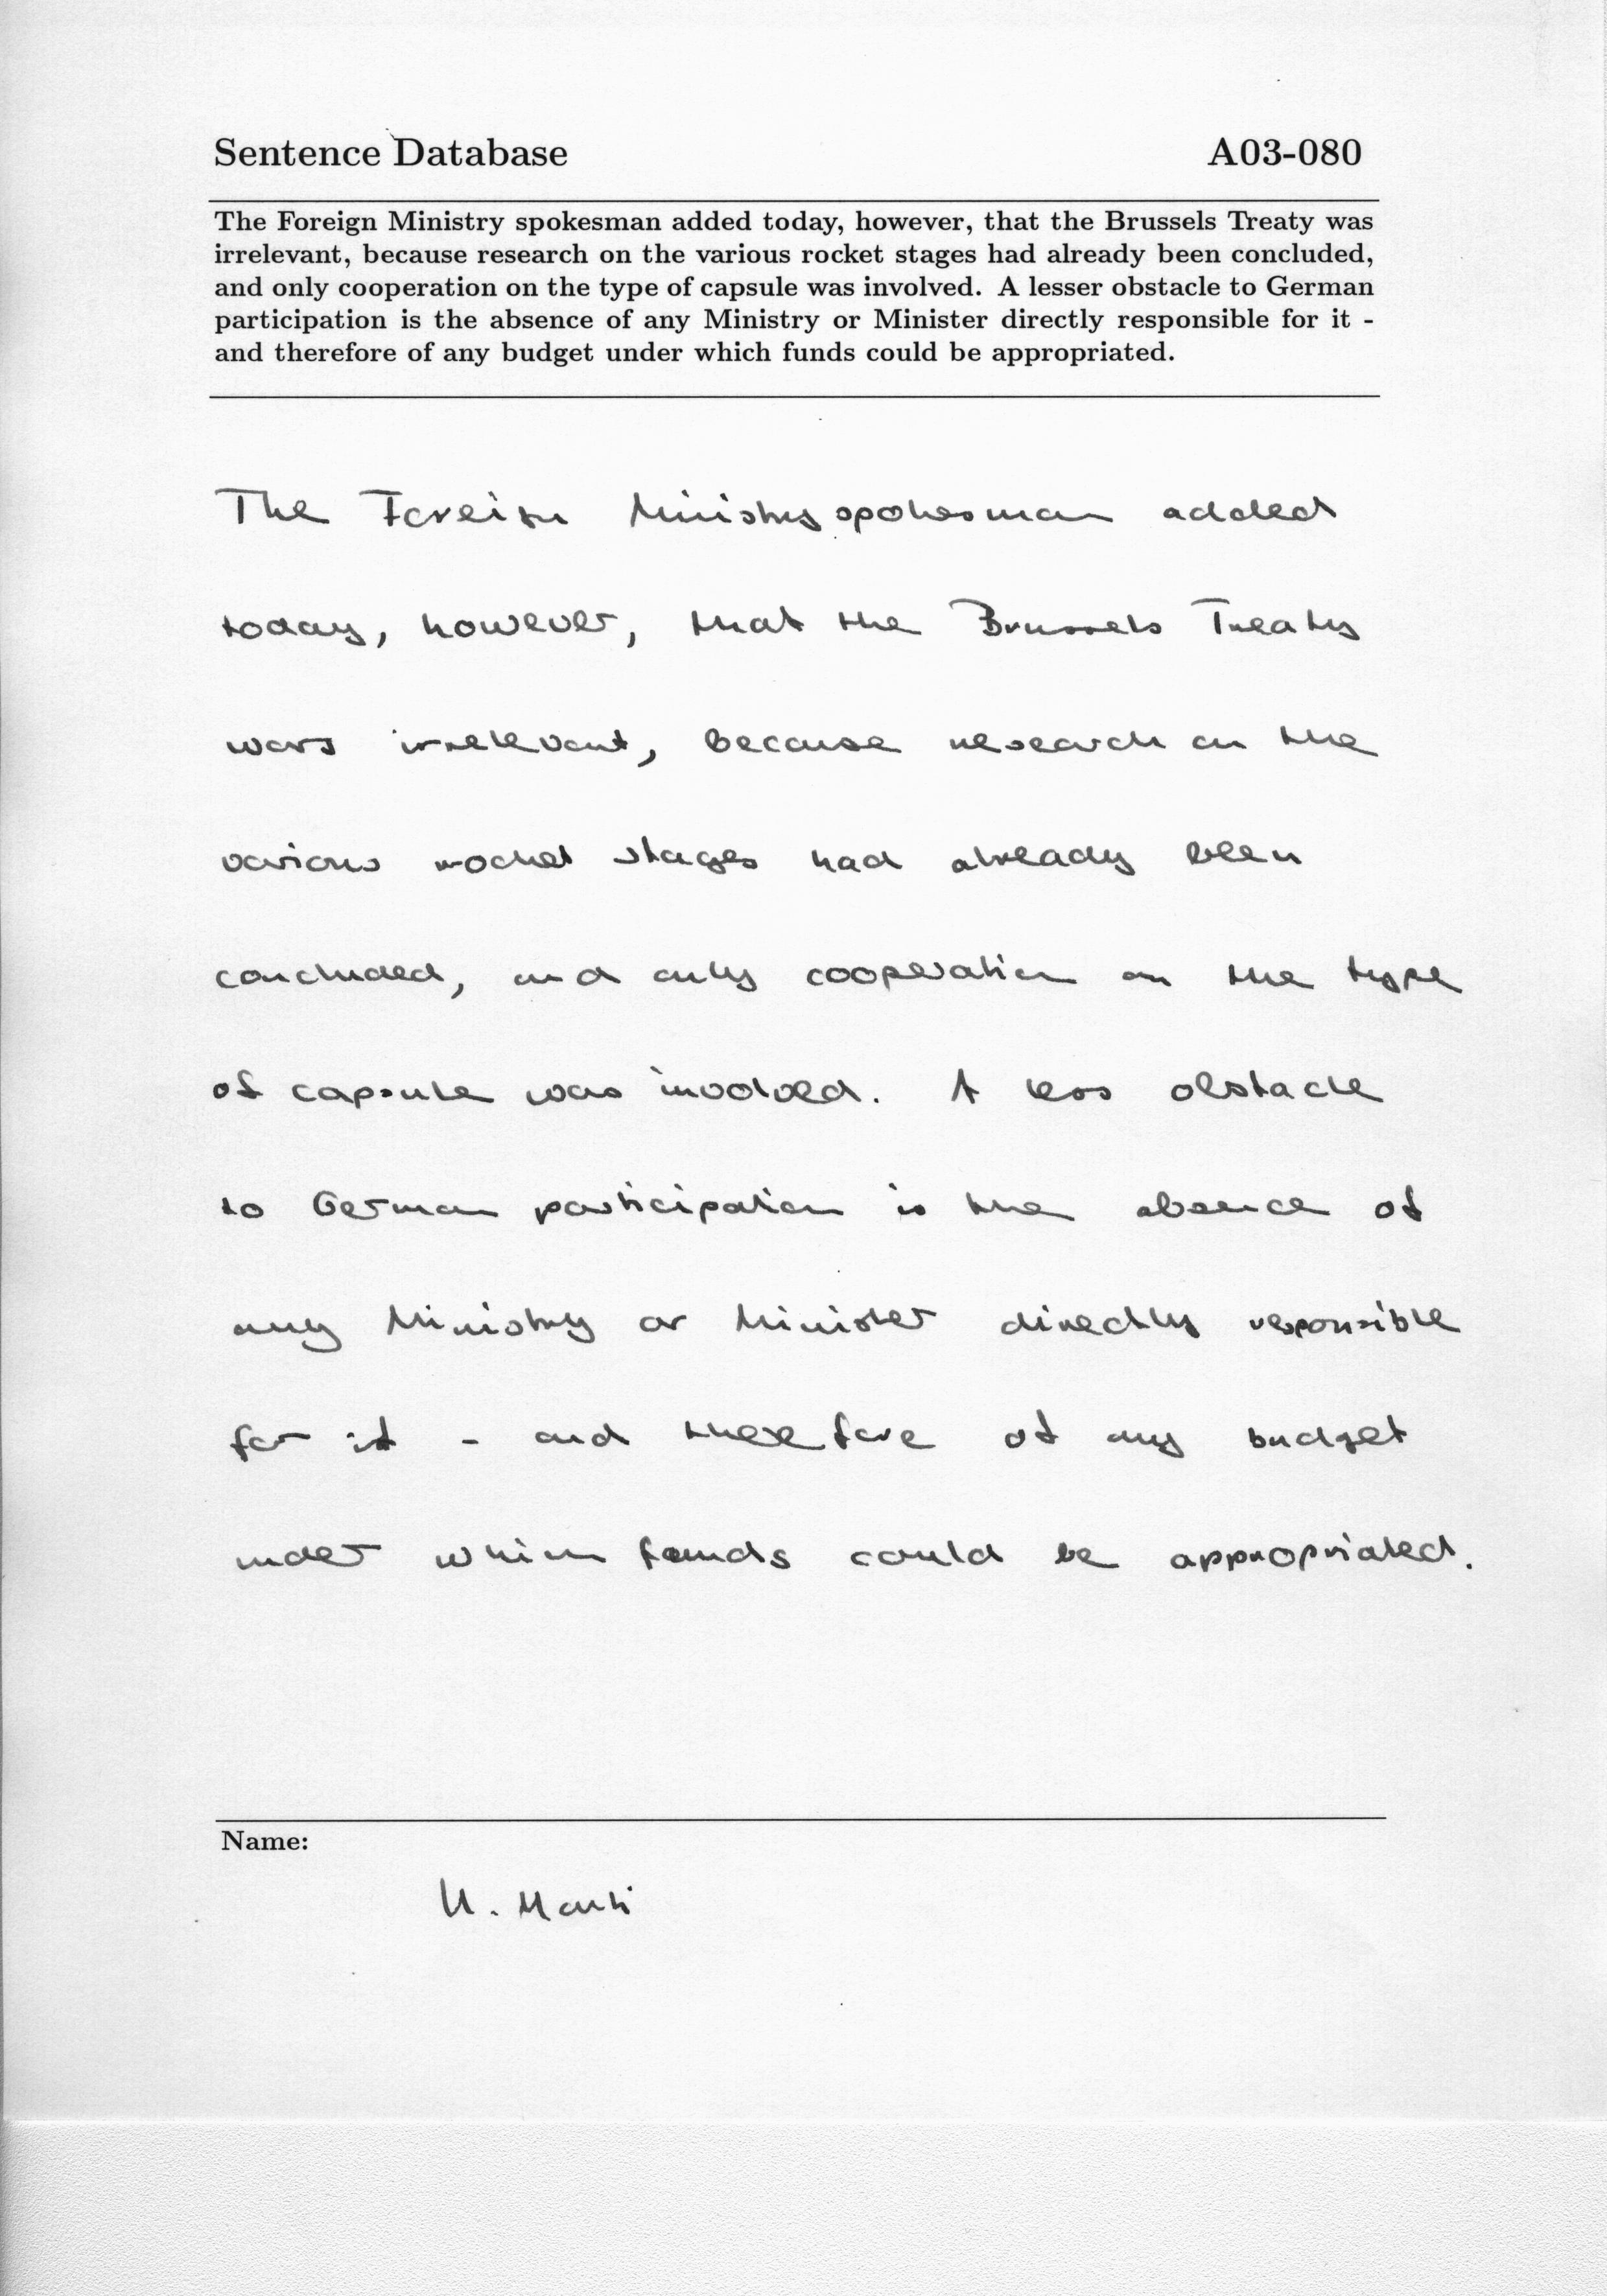 Sentence Database A03-080
The Foreign Ministry spokesman added today, however, that the Brussels Treaty was
irrelevant, because research on the various rocket stages had already been concluded,
and only cooperation on the type of capsule was involved. A lesser obstacle to German
participation is the absence of any Ministry or Minister directly responsible for it -
and therefore of any budget under which funds could be appropriated.
The Foreign Ministry spokesman added
today, however, that the Brussels Treaty
was irrelevant, because research on the
various rocket stages had already been
concluded, and only cooperation on the type
of capsule was involved. A less obstacle
to German participation is the absence of
any Ministry or Minister directly responsible
for it - and therefore of any budget
under which funds could be appropriated.
Name:
U. Marti